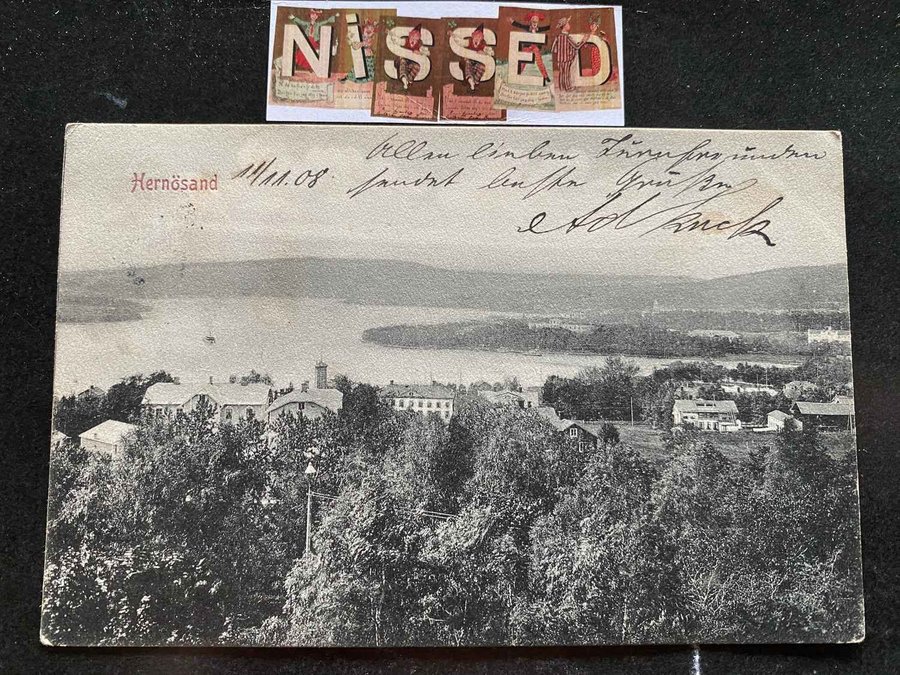 NiSSED
Hernösand 14/11.08.
Allen lieben Turnfreunden
sendet beste Grüße
Ad